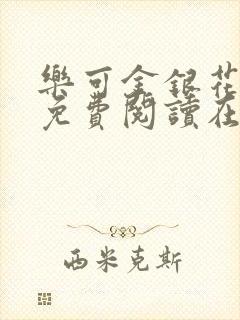 樂可金銀花
免費閱讀在
西米克斯